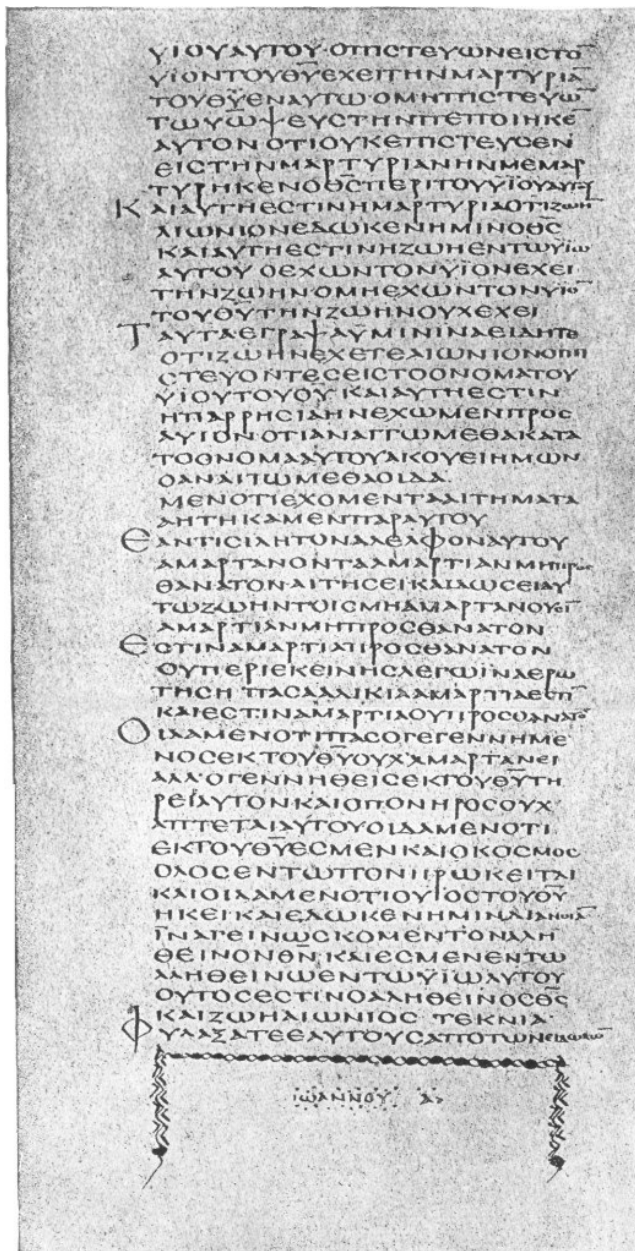 ΥΙΟΥΑΥΤΟΥ·ΟΠΙϹΤΕΥΩΝΕΙϹΤΟ̅
ΥΙΟΝΤΟΥΘ̅Υ̅ΕΧΕΙΤΗΝΜΑΡΤΥΡΙΑ̅
ΤΟΥΘ̅Υ̅ΕΝΑΥΤΩ·ΟΜΗΠΙϹΤΕΥΩ̅
ΤΩΥ̅Ω̅ΨΕΥϹΤΗΝΠΕΠΟΙΗΚΕ̅
ΑΥΤΟΝΟΤΙΟΥΚΕΠΙϹΤΕΥϹΕΝ
ΕΙϹΤΗΝΜΑΡΤΥΡΙΑΝΗΝΜΕΜΑΡ
ΤΥΡΗΚΕΝΟΘ̅Ϲ̅ΠΕΡΙΤΟΥΥΪΟΥΑΥΤΟΥ
ΚΑΙΑΥΤΗΕϹΤΙΝΗΜΑΡΤΥΡΙΑΟΤΙΖΩΗ̅
ΑΙΩΝΙΟΝΕΔΩΚΕΝΗΜΙΝΟΘ̅Ϲ̅
ΚΑΙΑΥΤΗΕϹΤΙΝΗΖΩΗΕΝΤΩΥΪΩ
ΑΥΤΟΥ·ΟΕΧΩΝΤΟΝΥΪΟΝΕΧΕΙ
ΤΗΝΖΩΗΝ·ΟΜΗΕΧΩΝΤΟΝΥΪΟ̅
ΤΟΥΘ̅Υ̅ΤΗΝΖΩΗΝΟΥΧΕΧΕΙ
ΤΑΥΤΑΕΓΡΑΨΑΫΜΙΝΙΝΑΕΙΔΗΤΕ
ΟΤΙΖΩΗΝΕΧΕΤΕΑΙΩΝΙΟΝΟΙΠΙ
ϹΤΕΥΟΝΤΕϹΕΙϹΤΟΟΝΟΜΑΤΟΥ
ΥΪΟΥΤΟΥΘ̅Υ̅·ΚΑΙΑΥΤΗΕϹΤΙΝ
ΗΠΑΡΡΗϹΙΑΗΝΕΧΩΜΕΝΠΡΟϹ
ΑΥΤΟΝ·ΟΤΙΑΝΑΙΤΩΜΕΘΑΚΑΤΑ
ΤΟΟΝΟΜΑΑΥΤΟΥΑΚΟΥΕΙΗΜΩΝ
ΟΑΝΑΙΤΩΜΕΘΑΟΙΔΑ·
ΜΕΝΟΤΙΕΧΟΜΕΝΤΑΑΙΤΗΜΑΤΑ
ΑΗΤΗΚΑΜΕΝΠΑΡΑΥΤΟΥ
ΕΑΝΤΙϹΙΔΗΤΟΝΑΔΕΛΦΟΝΑΥΤΟΥ
ΑΜΑΡΤΑΝΟΝΤΑΑΜΑΡΤΙΑΝΜΗΠΡΟϹ
ΘΑΝΑΤΟΝ·ΑΙΤΗϹΕΙΚΑΙΔΩϹΕΙΑΥ
ΤΩΖΩΗΝΤΟΙϹΜΗΑΜΑΡΤΑΝΟΥϹΙ̅
ΑΜΑΡΤΙΑΝΜΗΠΡΟϹΘΑΝΑΤΟΝ
ΕϹΤΙΝΑΜΑΡΤΙΑΠΡΟϹΘΑΝΑΤΟΝ
ΟΥΠΕΡΙΕΚΕΙΝΗϹΛΕΓΩΙΝΑΕΡΩ
ΤΗϹΗ·ΠΑϹΑΑΔΙΚΙΑΑΜΑΡΤΙΑΕϹΤΙ̅
ΚΑΙΕϹΤΙΝΑΜΑΡΤΙΑΟΥΠΡΟϹΘΑΝΑΤΟ̅
ΟΙΔΑΜΕΝΟΤΙΠΑϹΟΓΕΓΕΝΝΗΜΕ
ΝΟϹΕΚΤΟΥΘ̅Υ̅ΟΥΧΑΜΑΡΤΑΝΕΙ
ΑΛΛ·ΟΓΕΝΝΗΘΕΙϹΕΚΤΟΥΘ̅Υ̅ΤΗ
ΡΕΙΑΥΤΟΝ·ΚΑΙΟΠΟΝΗΡΟϹΟΥΧ
ΑΠΤΕΤΑΙΑΥΤΟΥ·ΟΙΔΑΜΕΝΟΤΙ
ΕΚΤΟΥΘ̅Υ̅ΕϹΜΕΝΚΑΙΟΚΟϹΜΟϹ
ΟΛΟϹΕΝΤΩΠΟΝΗΡΩΚΕΙΤΑΙ
ΚΑΙΟΙΔΑΜΕΝΟΤΙΟΥΙΟϹΤΟΥΘ̅Υ̅
ΗΚΕΙ·ΚΑΙΕΔΩΚΕΝΗΜΙΝΔΙΑΝΟΙΑ̅
ΪΝΑΓΕΙΝΩϹΚΟΜΕΝΤΟΝΑΛΗ
ΘΕΙΝΟΝΘ̅Ν̅·ΚΑΙΕϹΜΕΝΕΝΤΩ
ΑΛΗΘΕΙΝΩΕΝΤΩΥΪΩΑΥΤΟΥ
ΟΥΤΟϹΕϹΤΙΝΟΑΛΗΘΕΙΝΟϹΘ̅Ϲ̅
ΚΑΙΖΩΗΑΙΩΝΙΟϹ·ΤΕΚΝΙΑ·
ΦΥΛΑΞΑΤΕΕΑΥΤΟΥϹΑΠΟΤΩΝΕΙΔΩΛΩ̅
ΙΩΑΝΝΟΥ Α